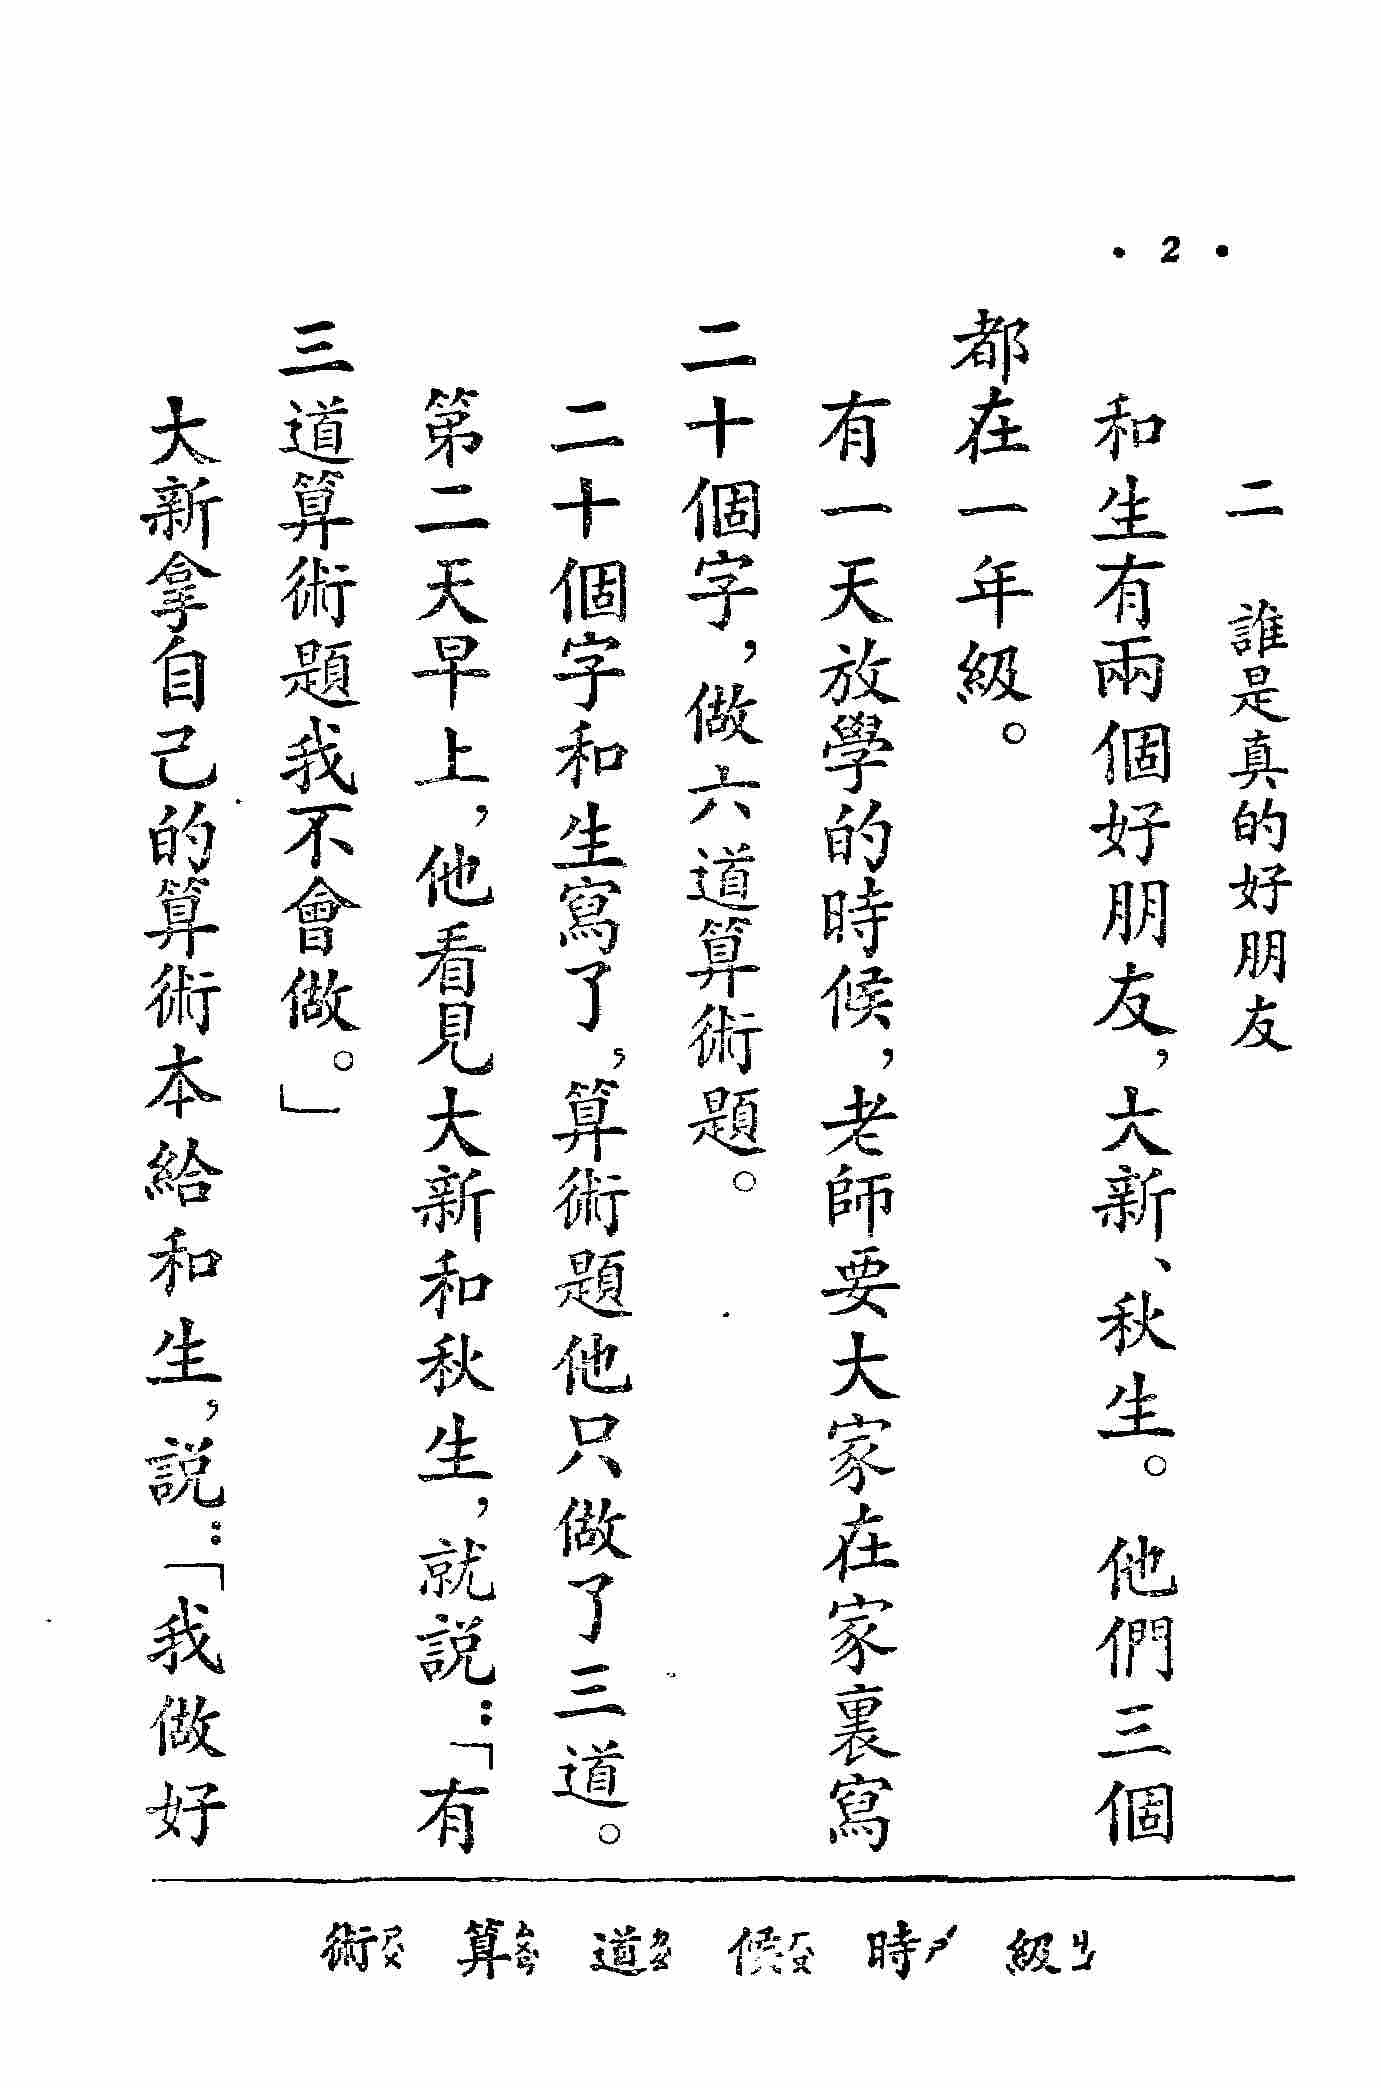 • 2 •
二　誰是真的好朋友
和生有兩個好朋友，大新、秋生。他們三個
都在一年級。
有一天放學的時候，老師要大家在家裏寫
二十個字，做六道算術題。
二十個字和生寫了，算術題他只做了三道。
第二天早上，他看見大新和秋生，就説：「有
三道算術題我不會做。」
大新拿自己的算術本給和生，説：「我做好
級ㄐㄧˊ 時ㄕˊ 候ㄏㄡ 道ㄉㄠ 算ㄙㄨㄢ 術ㄕㄨ